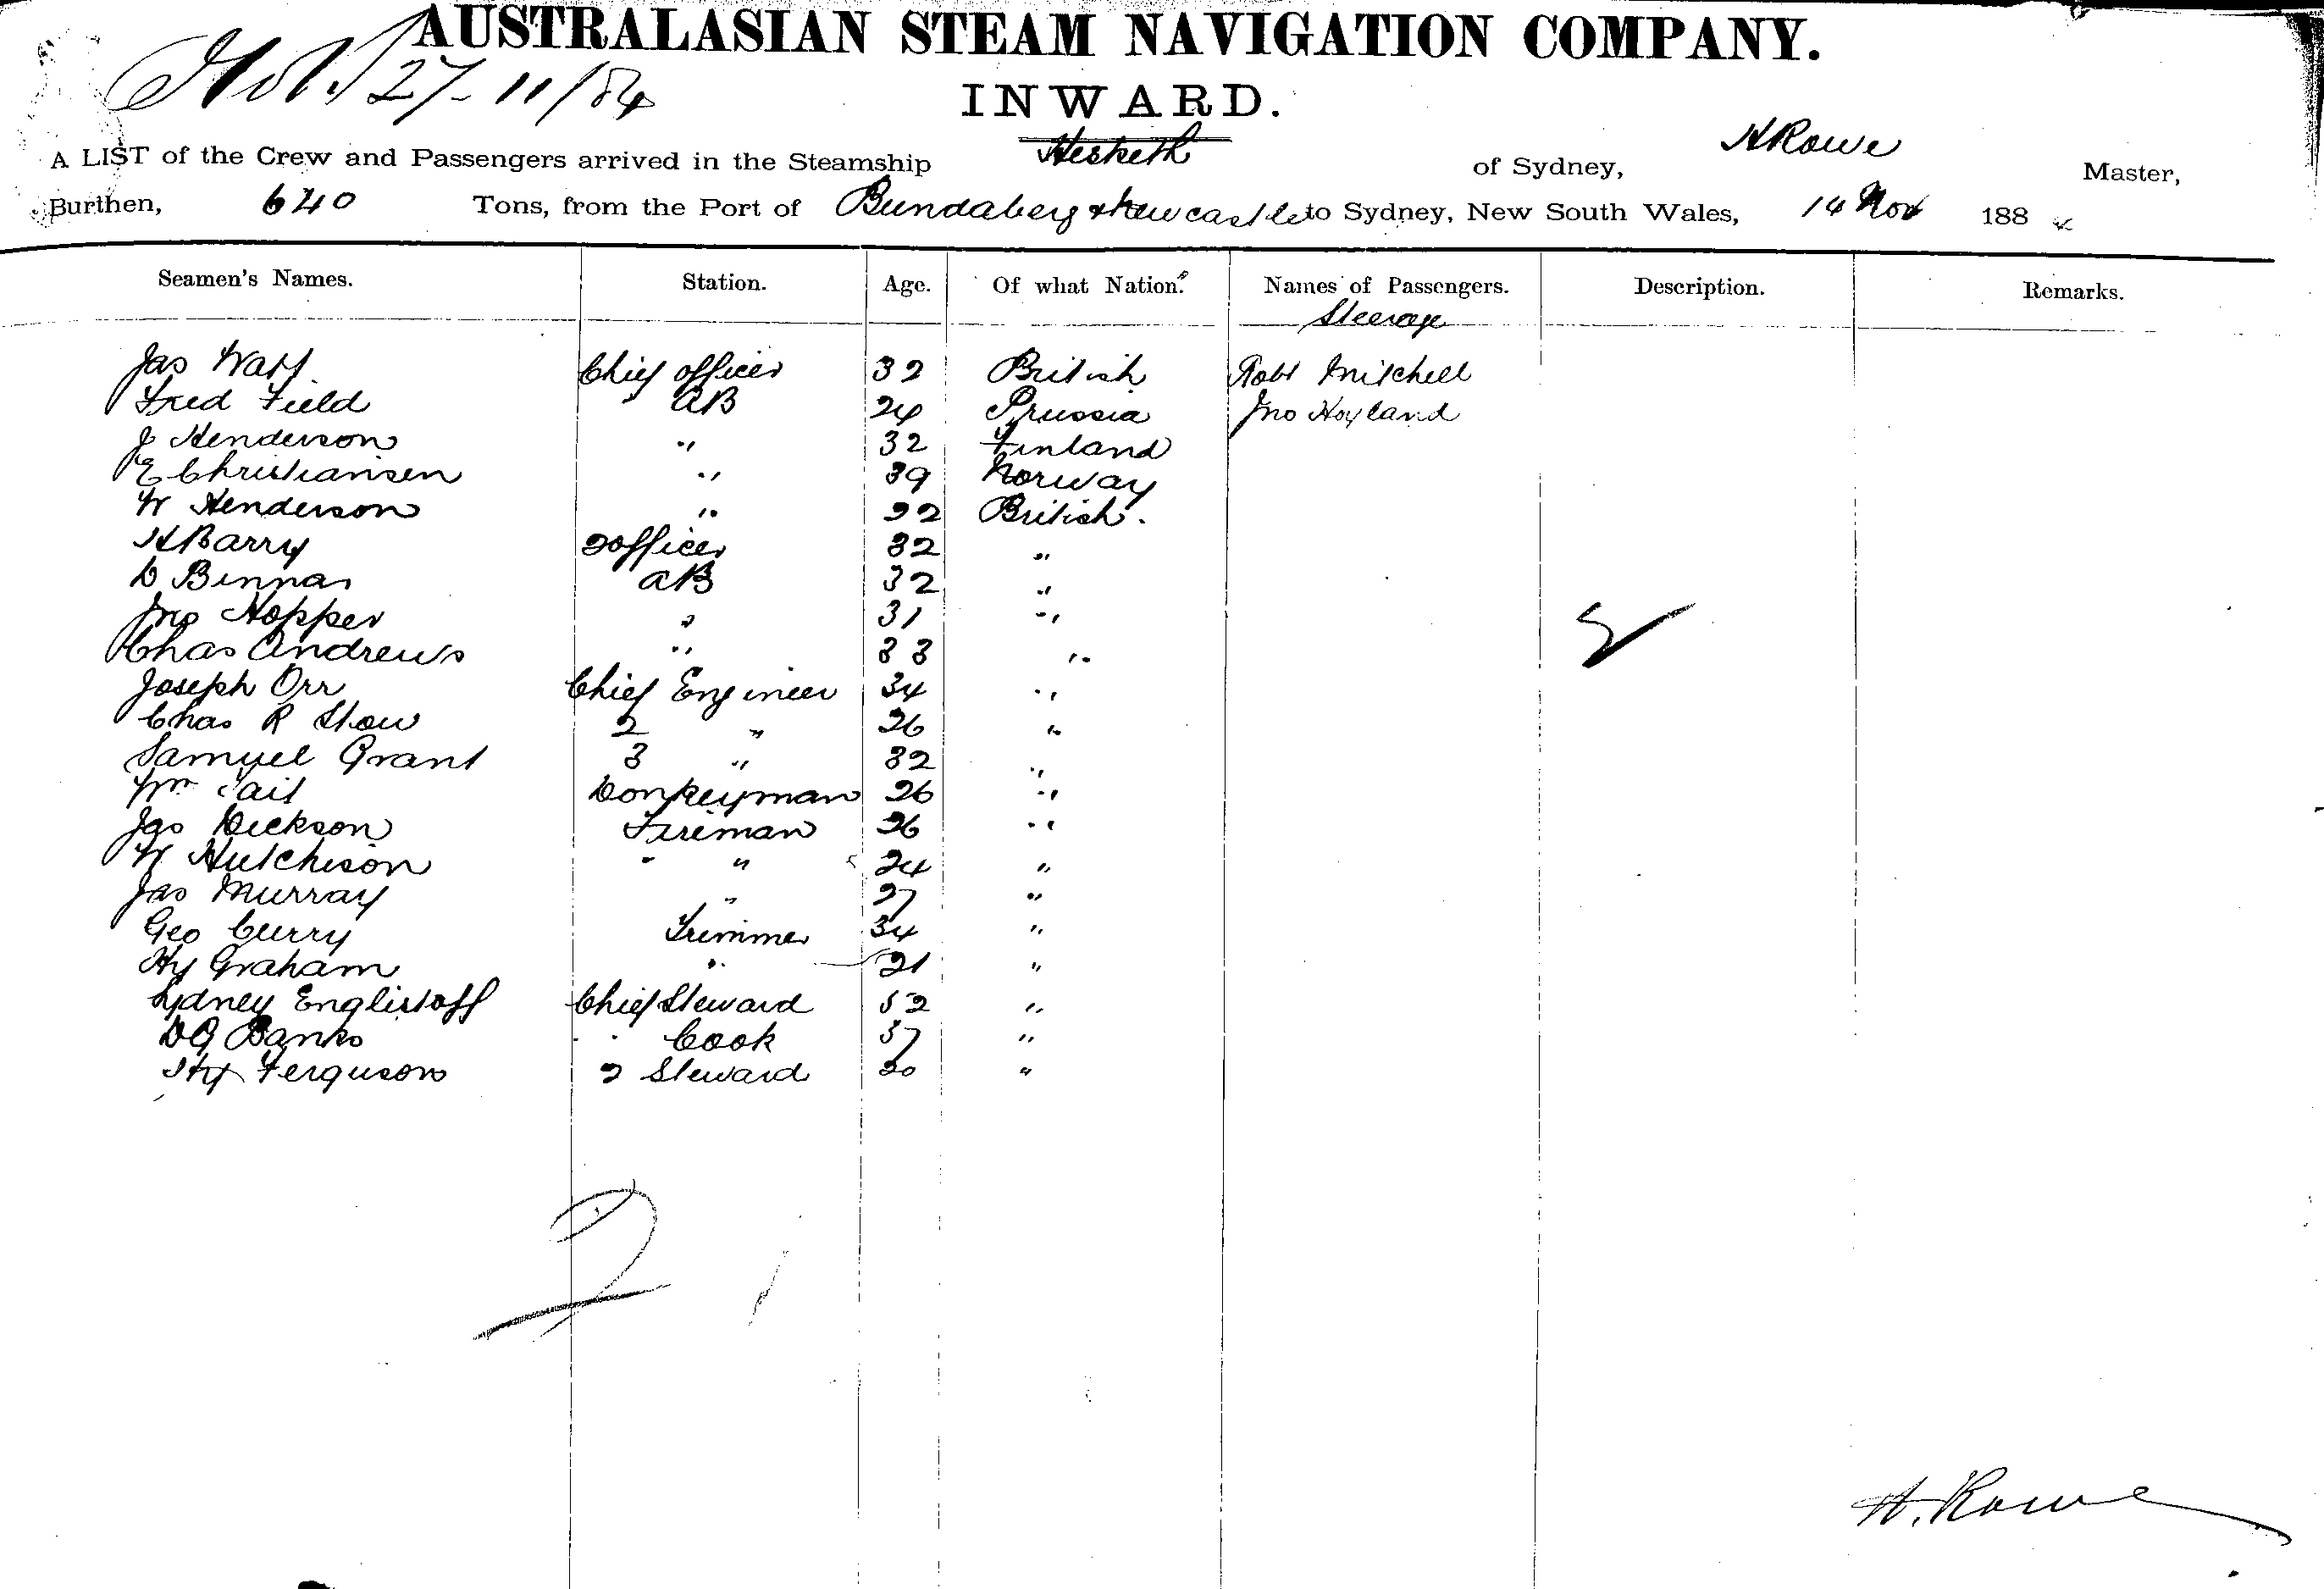 AUSTRALASIAN STEAM NAVIGATION COMPANY.
27-11/84
INWARD.
A LIST of the Crew and Passengers arrived in the Steamship Hesketh of Sydney, H Rowe Master,
Burthen, 640 Tons, from the Port of Bundaberg & Newcastle to Sydney, New South Wales, 14 Nov 1884
Seamen's Names. Station. Age. Of what Nation. Names of Passengers. Description. Remarks.
Steerage
Jas Watt Chief officer 32 British Robt Mitchell
Fred Field AB 24 Prussia Jno Hoyland
J Henderson " 32 Finland
E Christiansen " 39 Norway
W Henderson " 22 British.
H Barry 2 officer 32 "
D Binnas AB 32 "
Jno Hopper " 31 "
Chas Andrews " 33 "
Joseph Orr Chief Engineer 34 "
Chas R Show 2 " 26 "
Samuel Grant 3 " 32 "
Wm Tait Donkeyman 26 "
Jas Dickson Fireman 26 "
W Hutchison " 24 "
Jas Murray " 27 "
Geo Curry Trimmer 34 "
Hy Graham " 21 "
Sydney Englistoff Chief Steward 52 "
DG Banks Cook 37 "
Hy Ferguson 2 Steward 20 "
H. Rowe